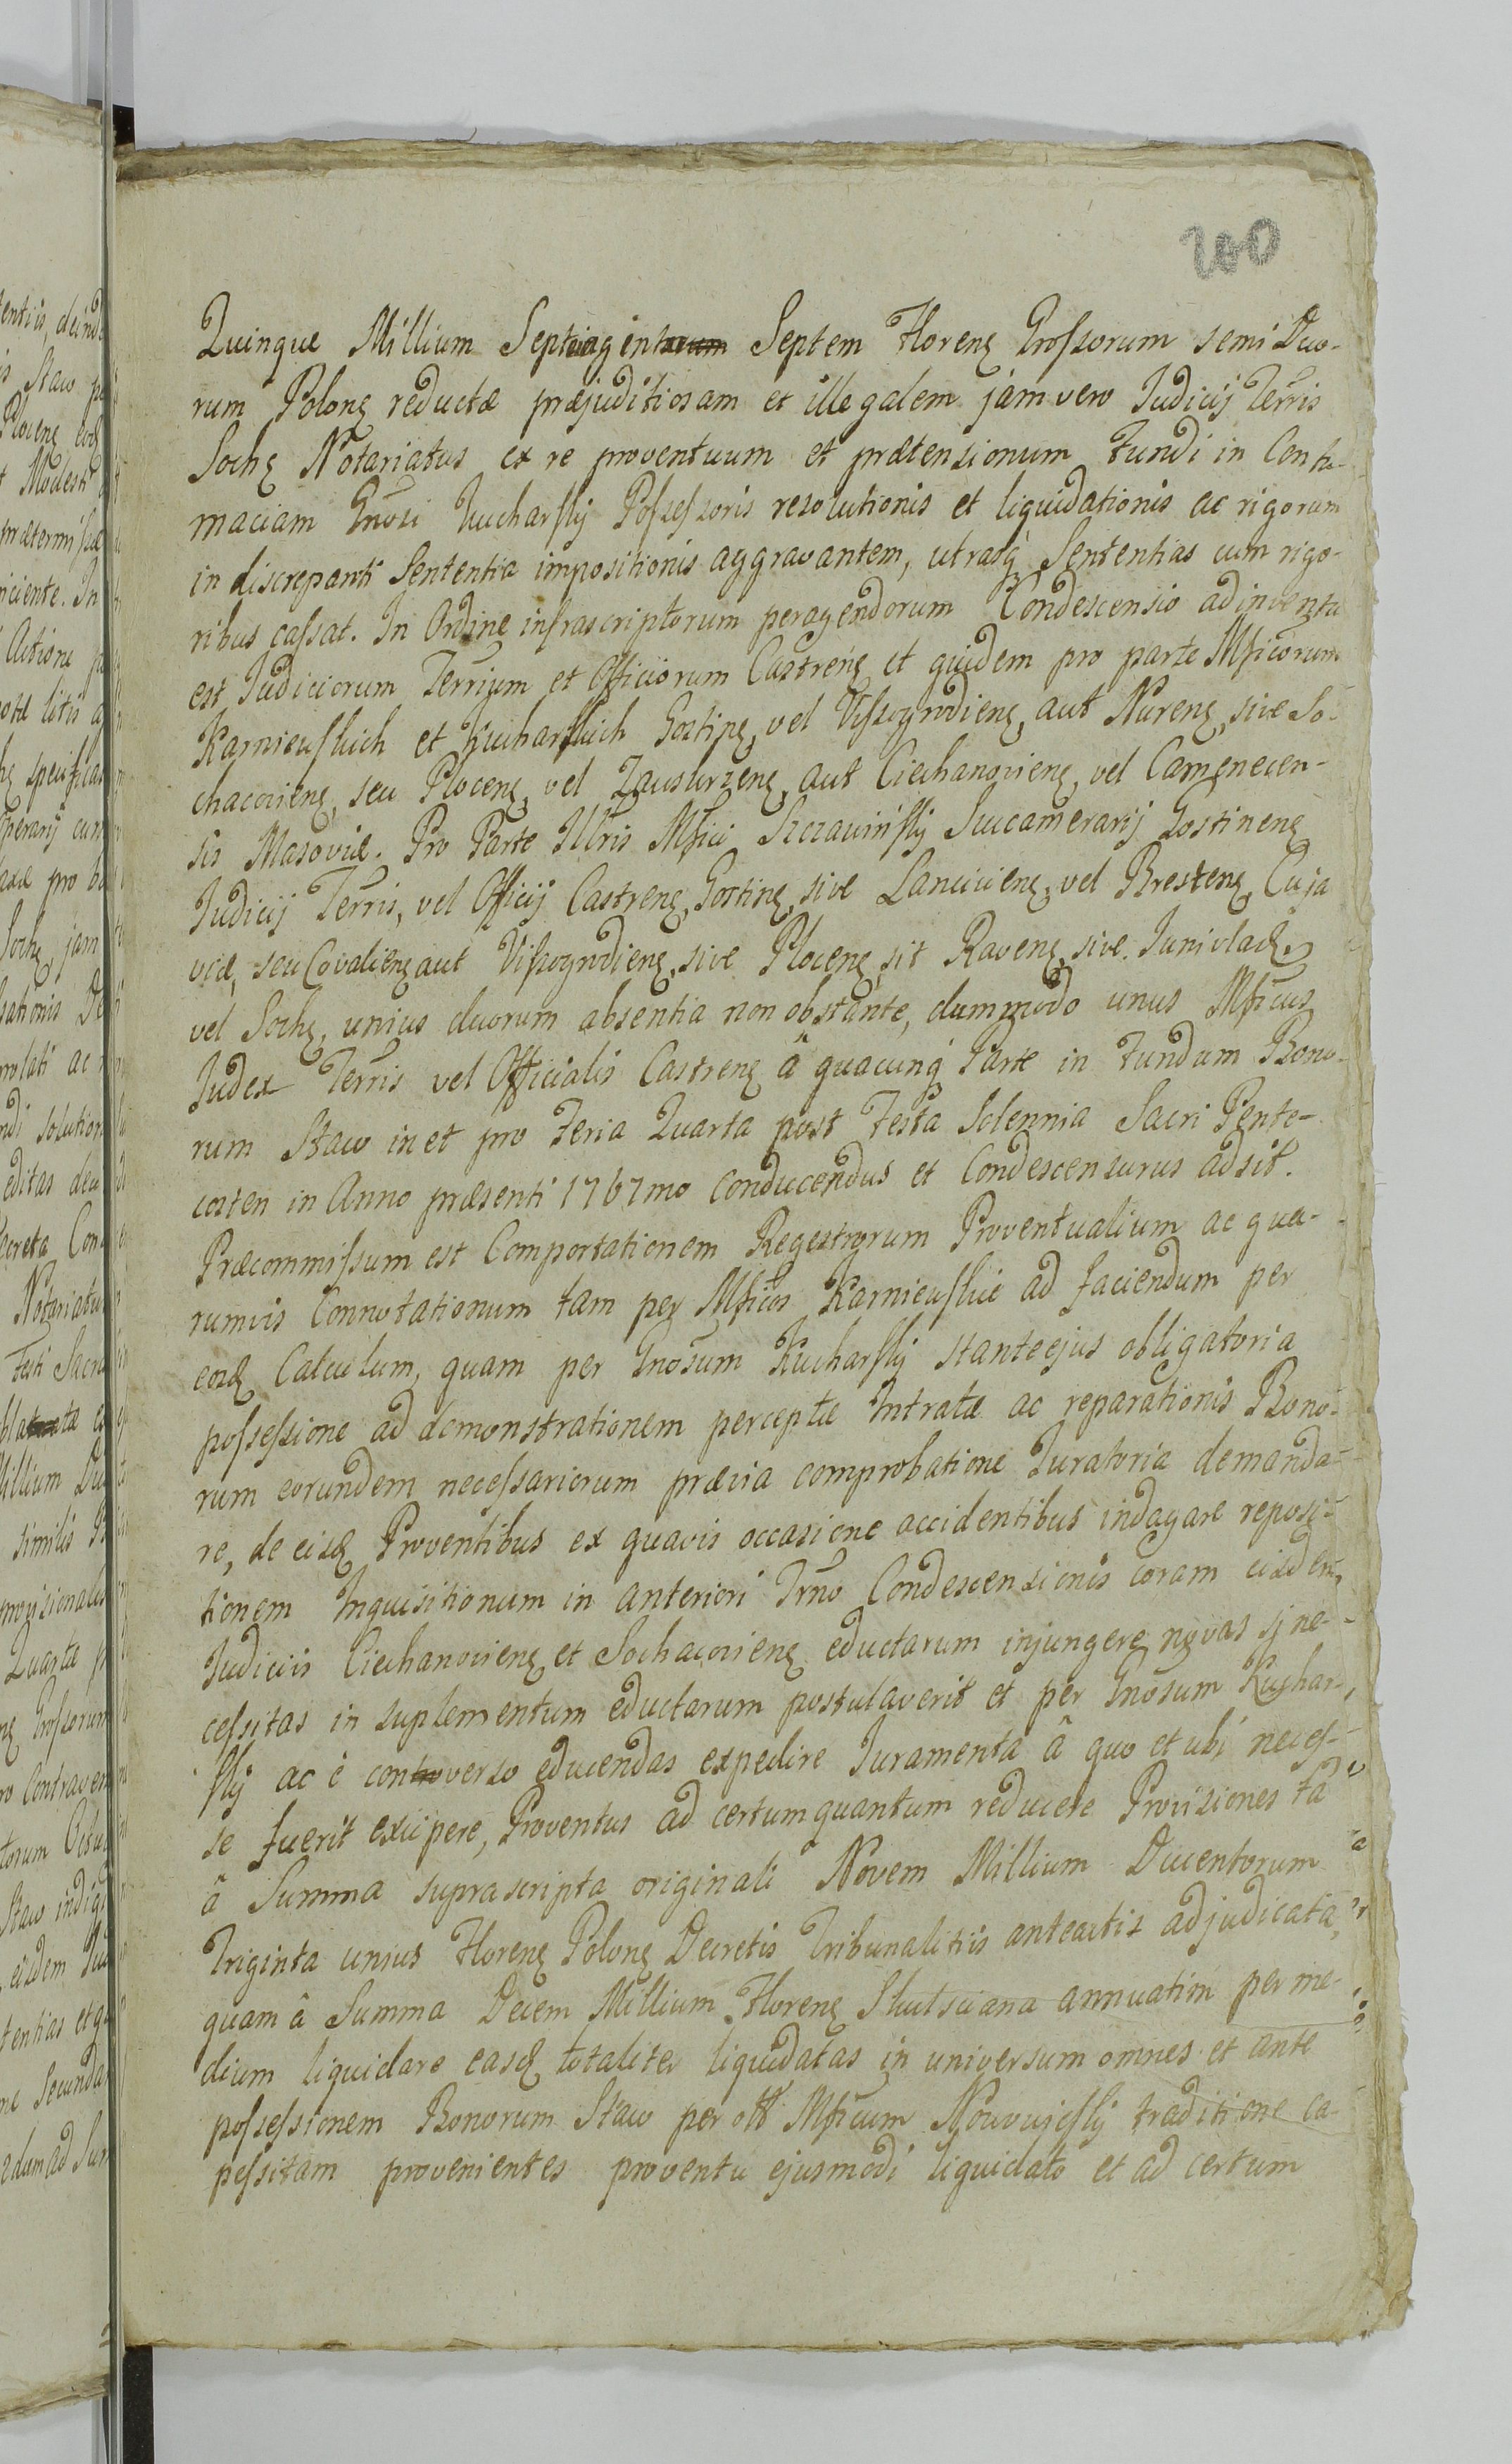 200
Quinque Millium Septingentrum Septem Floreng Grossorum semi Duo-
rum Polong reductæ præjuditiosam et illegalem jam vero Iudicij Terris
Sochg Notariatus ex re proventuum et prætensionum Fundi in Contu-
maciam Gnosi Kucharskij Possessoris resolutionis et liquidationis ac rigorum
in discrepanti Sententia impositionis aggravantem, utrasq Sententias cum rigo-
ribus cassat. In Ordine infrascriptorum peragendorum Condescensio adinventa
est Iudiciorum Terrium et Officiorum Castreng et quidem pro parte Mficorum
Karnieuskich et Kucharskich Gosting, vel Vissogrodieng, aut Nureng, sive So-
chacovieng, seu Ploceng, vel Zauskrzeng, aut Ciechanovieng, vel Camenecen-
sis Masoviæ. Pro Parte Illris Mfici Szczawinskij Succamerarij Gostineng
Iudicij Terris, vel Officij Castreng, Gosting, sive Lancicieng, vel Bresteng, Cuja
viæ, seu Covalieng aut Vissogrodieng, sive Ploceng, sit Raveng, sive Junivladg
vel Sochg, unius duorum absentia non obstante, dummodo unus Mficus
Iudex Terris vel Officialis Castreng â quacunq Parte in Fundum Bono-
rum Staw in et pro Feria Quarta post Festa Solennia Sacri Pente-
costen in Anno præsenti 1767mo conducendus et Condescensurus adsit.
Præcommissum est Comportationem Regestrorum Proventualium ac qua-
rumvis Connotationum tam per Mficos Karnieuskie ad faciendum per
eosd Calculum, quam per Gnosum Kucharskij stante ejus obligatoria
possessione ad demonstrationem perceptæ Intratæ ac reparationis Bono-
rum eorundem necessariorum prævia comprobatione Iuratoria demanda-
re, de eisd Proventibus ex quavis occasione accidentibus indagare reposi-
tionem Inquisitionum in anteriori Trno Condescensionis coram eisdem
Iudiciis Ciechanovieng et Sochacovieng eductarum injungere, novas si ne-
cessitas in suplementum eductarum postulaverit et per Gnosum Kuchar-
skij ac è controverso educendas expedire Iuramenta â quo et ubi neces-
se fuerit excipere, Proventus ad certum quantum reducere Provisiones tā
â Summa suprascripta originali Novem Millium Ducentorum
Triginta unius Floreng Polong Decretis Tribunalitiis anteactis adjudicata,
quam â Summa Decem Millium Floreng Skulsciana annuatim per me-
dium liquidare easd totaliter liquidatas in universum omnes et ante
possessionem Bonorum Staw per Mficum traditione ca-
pessitam provenientes proventu ejusmodi liquidato et ad certum